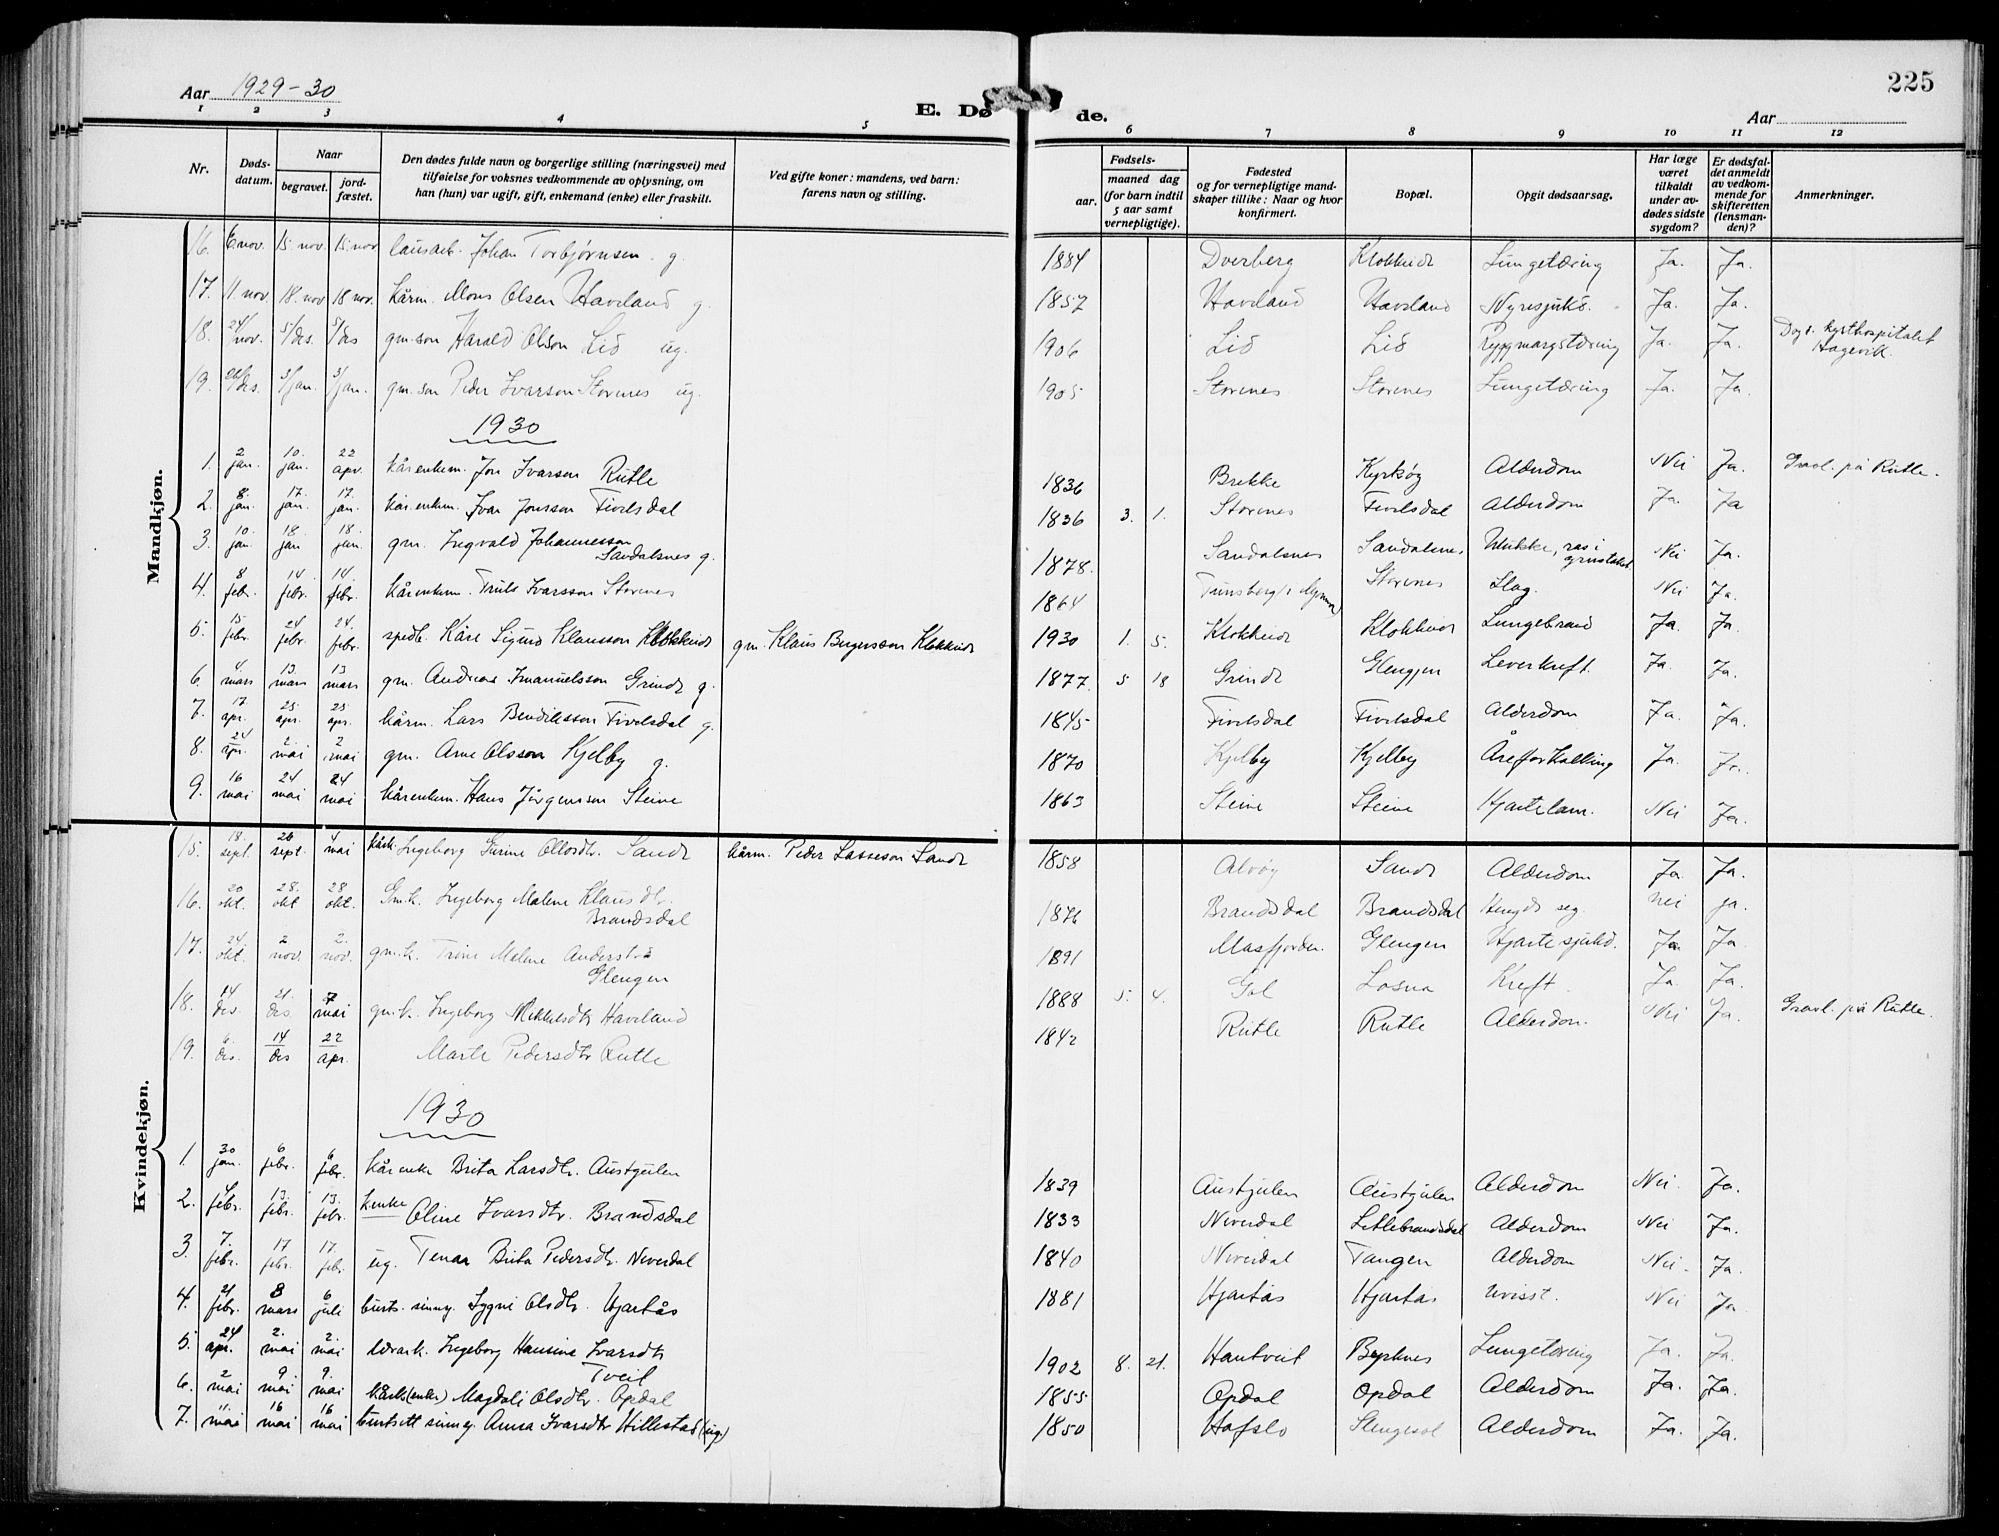 225
Aar 1929-30
E. Døde.
Aar
1 2 3 4 5 6 7 8 9 10 11 12
Nr.
Dødsdatum.
Naar
begravet.
jordfæstet.
Den dødes fulde navn og borgerlige stilling (næringsvei) med
tilføielse for voksnes vedkommende av oplysning, om
han (hun) var ugift, gift, enkemand (enke) eller fraskilt.
Ved gifte koner: mandens, ved barn:
farens navn og stilling.
Fødsels-
aar. maaned dag
(for barn indtil
5 aar samt
vernepligtige).
Fødested
og for vernepligtige mandskaper tillike: Naar og hvor
konfirmert.
Bopæl.
Opgit dødsaarsag.
Har læge
været
tilkaldt
under avdødes sidste
sygdom?
Er dødsfaldet anmeldt
av vedkommende for
skifteretten
(lensmanden)?
Anmerkninger.
Mandkjøn.
16. 6 nov. 15 nov. 15. nov lausarb. Johan Torbjørnsen g. 1884 Dverberg Klokkeide Lungetæring Ja. Ja.
17. 11 nov. 18. nov 18 nov. kårm. Mons Olsen Haveland g. 1857 Haveland Haveland Nyresjukd. Ja. Ja.
18. 24/nov. 5/des. 5/des gm. son Harald Olson Lid ug. 1906 Lid Lid Ryggmargstæring Ja. Ja. Døy i kysthospitalet
Hagevik.
19. /des. 3/jan. 3/jan. gm. son Peder Ivarson Storenes ug. 1905 Storenes Storenes Lungetæring Ja. Ja.
1930
1. 2 jan. 10 jan. 22 apr. kårenkem. Jon Ivarson Rutle 1836 Brekke Kyrkøy Alderdom Nei Ja. Gravl. på Rutle.
2. 8. jan. 17. jan. 17. jan. kårenkem. Ivar Jonsson Fivelsdal 1836 3. 1. Storenes Fivelsdal Alderdom Ja. Ja
3. 10 jan. 18 jan 18. jan. gm. Ingvald Johannesson
Sandalsnes g. 1878. Sandalsnes Sandalsnes. Ulukke, ras i
grustaket Nei Ja.
4. 8 febr. 14. febr. 14. febr. kårenkem. Truls Ivarsson Storenes 1864 Storenes Slag. Nei Ja.
5. 15 febr. 24 febr. 24. febr. spedb. Kåre Sigurd Klausson Klokkeide gm. Klaus Birgerson Klokkeide 1930 1. 5. Klokkeide Klokkeide Lungebrand Ja. Ja.
6. 4 mars 13. mars 13 mars gm. Andreas Imanuelsson Grinde g. 1877. 5 18 Grinde Glengjen Leverkreft. Ja. Ja.
7. 17 apr. 25. apr. 25 apr. kårm. Lars Bendiksson Fivelsdal g. 1845 Fivelsdal Fivelsdal Alderdom Ja. Ja.
8. 24 apr. 2. mai 2 mai gm. Arne Olsson Kjelby g. 1870 Kjelby Kjelby Åreforkalking Ja. Ja.
9. 16 mai 24 mai 24 mai kårenkem. Hans Jørgensson Steine 1863 Steine Steine Hjartelam. Nei Ja.
Kvindekjøn.
15. 18 sept. 26 sept. 4 mai kårk. Ingeborg Gurine Ollosdtr. Sande kårm. Peder Lasseson Sande 1858 Alvøy Sande Alderdom Ja. Ja.
16. 20 okt. 28. okt 28 okt. Gm.k. Ingeborg Malene Klausdtr.
Brandsdal 1876 Brandsdal Brandsdal Hengde seg. nei ja.
17. 24. okt. 2 nov. 2. nov. gm.k. Trine Malene
Glengen 1891 Masfjorden. Glengen Hjartesjukd. Ja Ja
18. 14 des. 21. des. 7 mai gm.k. Ingeborg Mikkelsdtr Haveland 1888 5. 4. Gol Losna Kreft. Ja. Ja.
19. 6. des. 14 des 22 apr. Marte Pedersdtr Rutle 1842 Rutle Rutle Alderdom. Nei Ja. Gravl. på Rutle.
1930
1. 30 jan. 6 febr. 6 febr. kårenke Brita Larsdtr. Austgulen 1839 Austgulen Austgulen Alderdom Nei. Ja.
2. 4 febr. 13. febr. 13. febr. kenke Oline Ivarsdtr. Brandsdal 1833 Neverdal Litlebrandsdal Alderdom Nei Ja.
3. 7. febr. 17 febr. 17. febr. ug. Tenar Brita Pedersdtr. Neverdal 1840 Neverdal Tangen Alderdom Nei. Ja.
4. 21 febr. 8 mars 6 juli burts. sinnsj. Sygni Olsdtr. Hjartås 1881 Hjartås Hjartås uvisst. Nei Ja.
5. 24 apr. 2. mai 2. mai lærark. Ingeborg Hansine Ivarsdtr
Tveit 1902 8. 21. Hantveit Byrknes Lungetæring Ja. Ja.
6. 2 mai 9 mai 9. mai kårk (enke) Magdali Olsdtr. Opdal 1855 Opdal Opdal Alderdom Ja. Ja.
7. 11. mai 16 mai 16 mai burtsett sinnsj. Anna Ivarsdtr Hillestad (ug.) 1850 Hafslo Alderdom Ja. Ja.